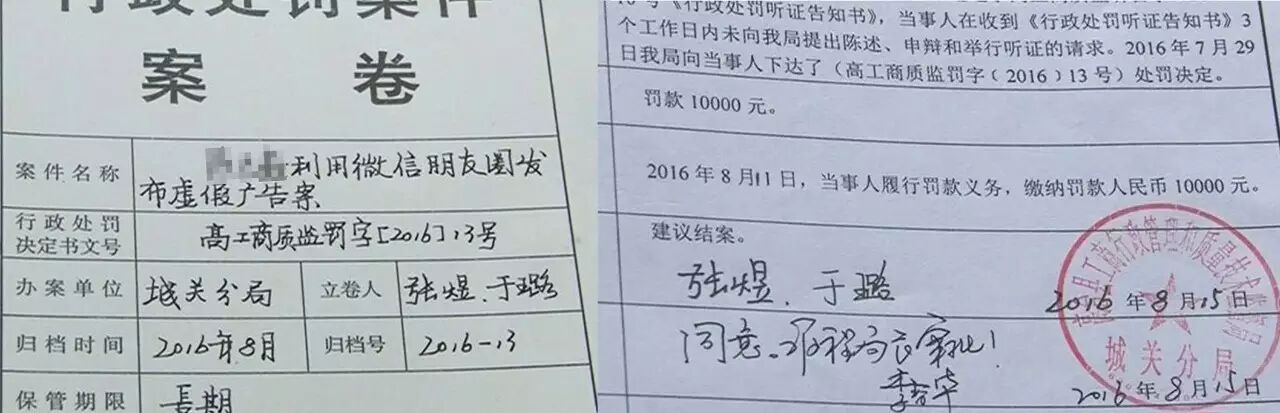 行政处罚案件
案 卷
案件名称
利用微信朋友圈发
布虚假广告案
行政处罚
决定书文号
高工商质监罚字[2016]13号
办案单位
城关分局
立卷人
张煜、于璐
归档时间
2016年8月
归档号
2016-13
保管期限
长期
号《行政处罚听证告知书》，当事人在收到《行政处罚听证告知书》3
个工作日内未向我局提出陈述、申辩和举行听证的请求。2016年7月29
日我局向当事人下达了（高工商质监罚字﹝2016﹞13号）处罚决定。
罚款 10000 元。
2016年8月11日，当事人履行罚款义务，缴纳罚款人民币 10000 元。
建议结案。
张煜、于璐
2016年8月15日
同意。
局长审批！
2016年8月15日
县工商行政管理和质量技术监督局
城关分局